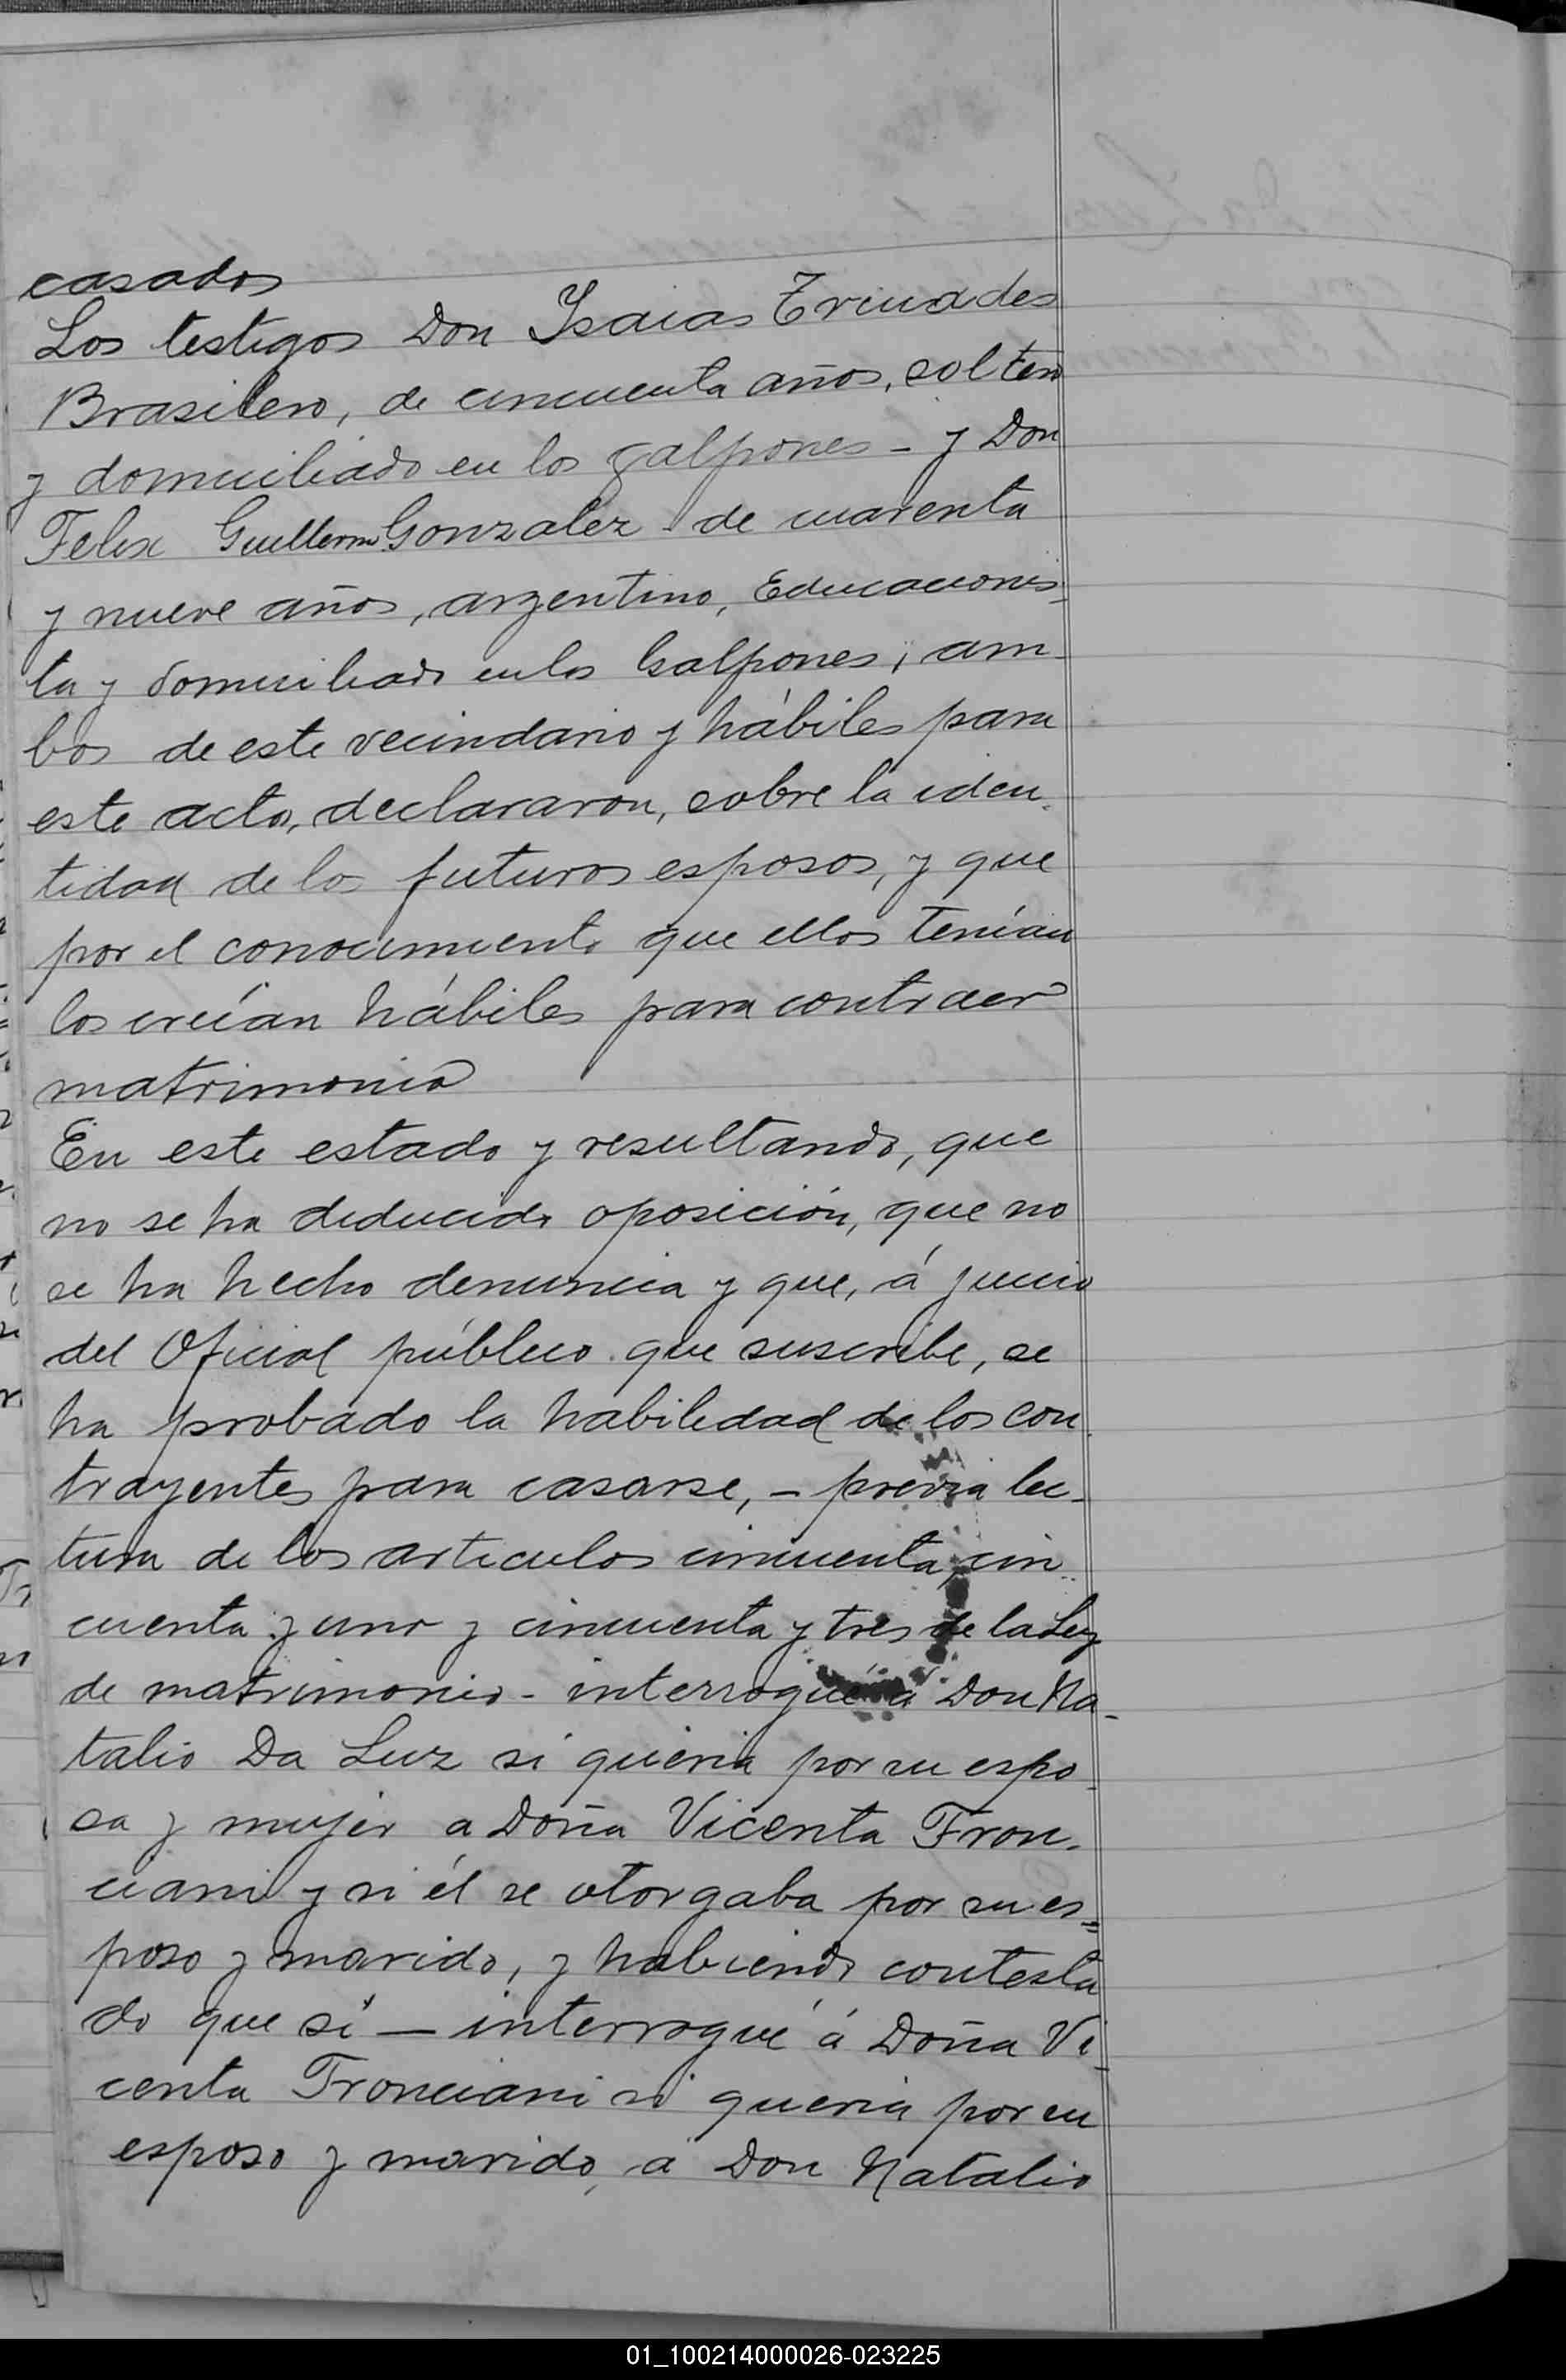 casados
Los testigos Don Isaias Trinades
Brasilero, de cincuenta años, soltero
y domiciliado en los galpones - y Don
Felix Guillermo Gonzalez - de cuarenta
y nueve años, argentino, Educacionis-
ta y domiciliado en los Galpones, am-
bos de este vecindario y hábiles para
este acto, declararon, sobre la iden-
tidad de los futuros esposos, y que
por el conocimiento que ellos tenían
los creían hábiles para contraer
matrimonio
En este estado y resultando, que
no se ha deducido oposición, que no
se ha hecho denuncia y que, á juicio
del Oficial público que suscribe, se
ha probado la habilidad de los con-
trayentes para casarse, - previa lec-
tura de los articulos cincuenta, cin-
cuenta y uno y cincuenta y tres de la Ley
de matrimonio - interrogué á Don Na-
talio Da Luz si queria por su espo-
sa y mujer a Doña Vicenta Fron-
ciani y si él se otorgaba por su es=
poso y marido, y habiendo contesta
do que sí — interrogué á Doña Vi-
centa Fronciani si queria por su
esposo y marido, a Don Natalio
01_100214000026-023225